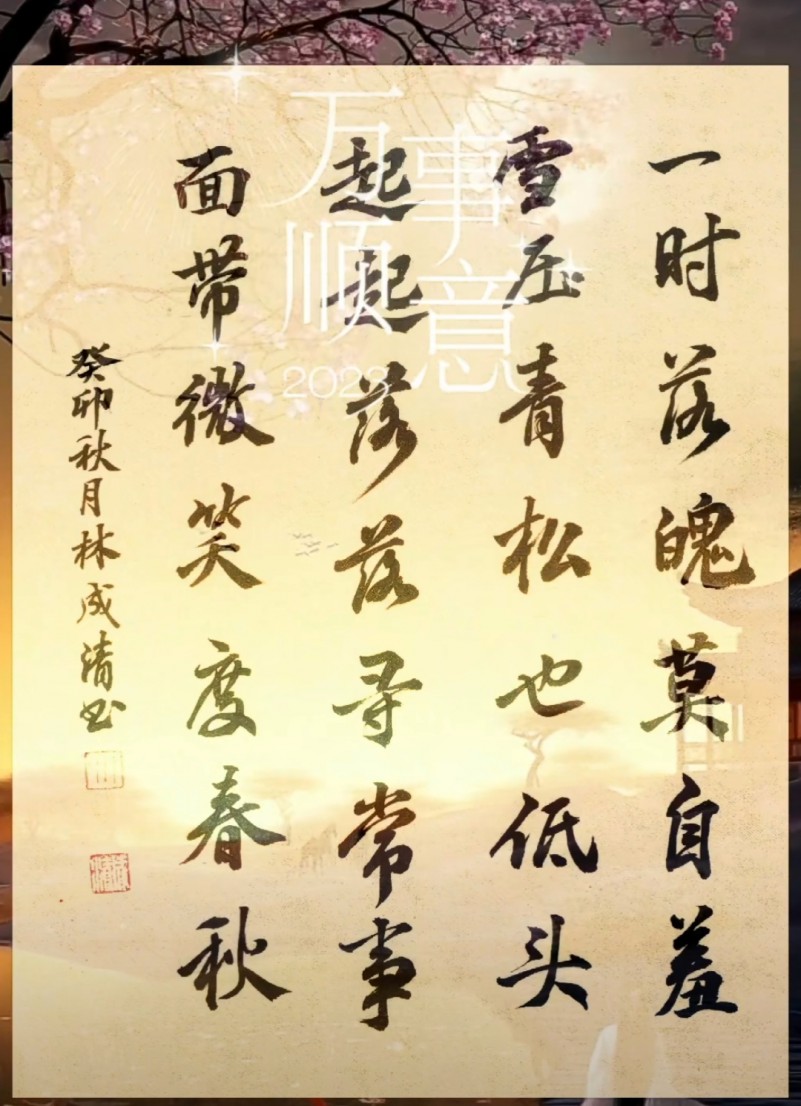 一时落魄莫自羞
雪压青松也低头
起起落落寻常事
面带微笑度春秋
癸卯秋月林成清书
万事顺意